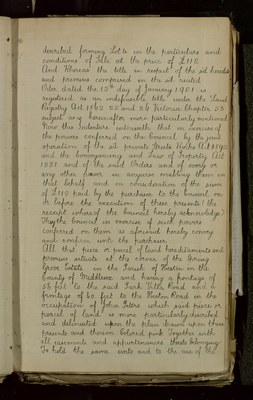 described forming Lot 6 in the particulars and
conditions of Sale at the price of £110
And Whereas the title in respect of the sd heredts
and premises comprised in the sd recited
Order dated the 15th day of January 1901 is
registered as an indefeasible title under the Land
Registry Act 1862 25 and 26 Victoria Chapter 53
subject as hereinafter more particularly mentioned
Now this Indenture witnesseth that in exercise of
the powers conferred on the Council by the joint
operation of the sd private Streets Works Act 1892
and the Conveyancing and Law of Property Act
1881 and of the said Orders and of every or
any other power in anywise enabling them in
that behalf and in consideration of the sum
of £110 paid by the purchaser to the Council on
or before the execution of these presents (the
receipt whereof the Council hereby acknowledge)
They the Council in exercise of such powers
conferred on them as aforesaid hereby convey
and confirm unto the purchaser
All that piece or parcel of land hereditaments and
premises situate at the corner of the Spring
Grove Estate in the Parish of Heston in the
County of Middlesex and having a frontage of
56 feet to the said Park Villa Road and a
frontage of 60 feet to the Heston Road in the
occupation of John Peters which said piece or
parcel of land is more particularly described
and delineated upon the plan drawn upon these
presents and thereon Colored pink Together with
all easements and appurtenances thereto belonging
To hold the same unto and to the use of the